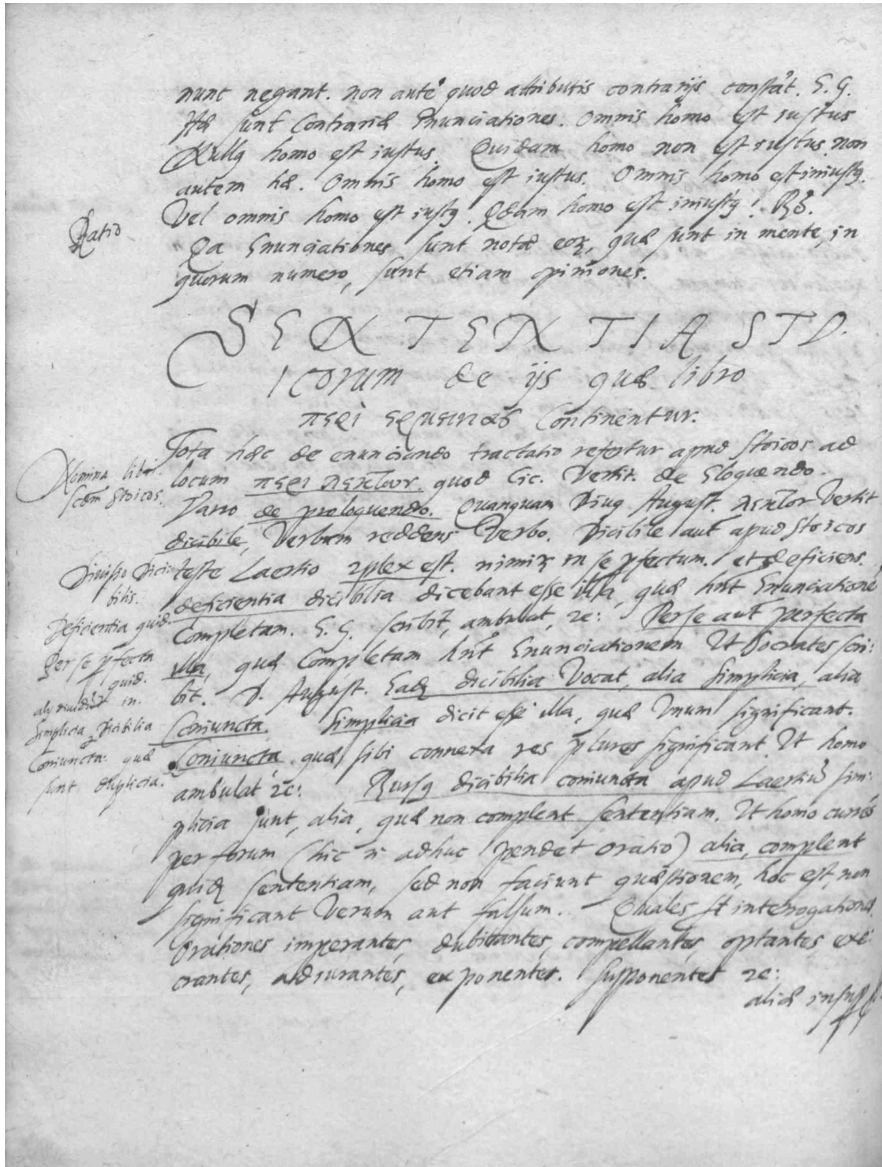 nunc negant. non autē quod attributis contrarijs constāt. E. G.
Hæ sunt Contrariæ Enunciationes. Omnis homo est iustus
Nullq homo est iustus. Quidam homo non est iustus non
autem hæ. Omnis homo est iustus. Omnis homo est iniustq.
Vel omnis homo est iustq. Qdam homo est iniustq!
Ratio
Qa Enunciationes sunt notæ eoꝝ, quæ sunt in mente, in
quorum numero, sunt etiam opiniones.
SENTENTIA STO-
ICORUM de ijs quæ libro
περὶ ἑρμηνείας Continentur.
Nomina libri
scdm Stoicos.
Tota hæc de enunciando tractatio refertur apud Stoicos ad
locum περὶ λεκτῶν. quod Cic. Vertit. de Eloquendo.
Varro de proloquendo. Quanquam Diuq August. λεκτὸν Vertit
dicibile, Verbum reddens Verbo. Dicibile aut apud Stoicos
Diuisio Dici-
bilis.
teste Laertio 2plex est. nimiꝝ in se pfectum. et deficiens.
deficientia dicibilia dicebant esse illa, quæ hnt Enunciationē
Deficientia quid.
Completam. E. G. scribit, ambulat, ꝛc: Per se aut perfecta
Per se pfecta
quid.
illa, quæ Completam hnt Enunciationem Ut Socrates scri-
bit. D. August. Eadē dicibilia Vocat, alia simplicia, alia
aliq diuidūtr in.
Simplicia Dicibilia
Coniuncta: quæ
sunt duplicia.
Coniuncta. Simplicia dicit esse illa, quæ Vnum significant.
Coniuncta. quæ sibi connexa res plures significant Ut homo
ambulat, ꝛc: Rursq dicibilia coniuncta apud Laertiū sim-
plicia sunt, alia, quæ non complent sententiam. Ut homo currēs
per forum (hic n. adhuc pendet oratio) alia, complent
qdē sententiam, sed non faciunt quæstionem, hoc est, non
significant Verum aut falsum. Quales st interrogationes
Orationes imperantes, dubitantes, compellantes, optantes exe-
crantes, adiurantes, exponentes. Supponentes ꝛc:
aliæ insup